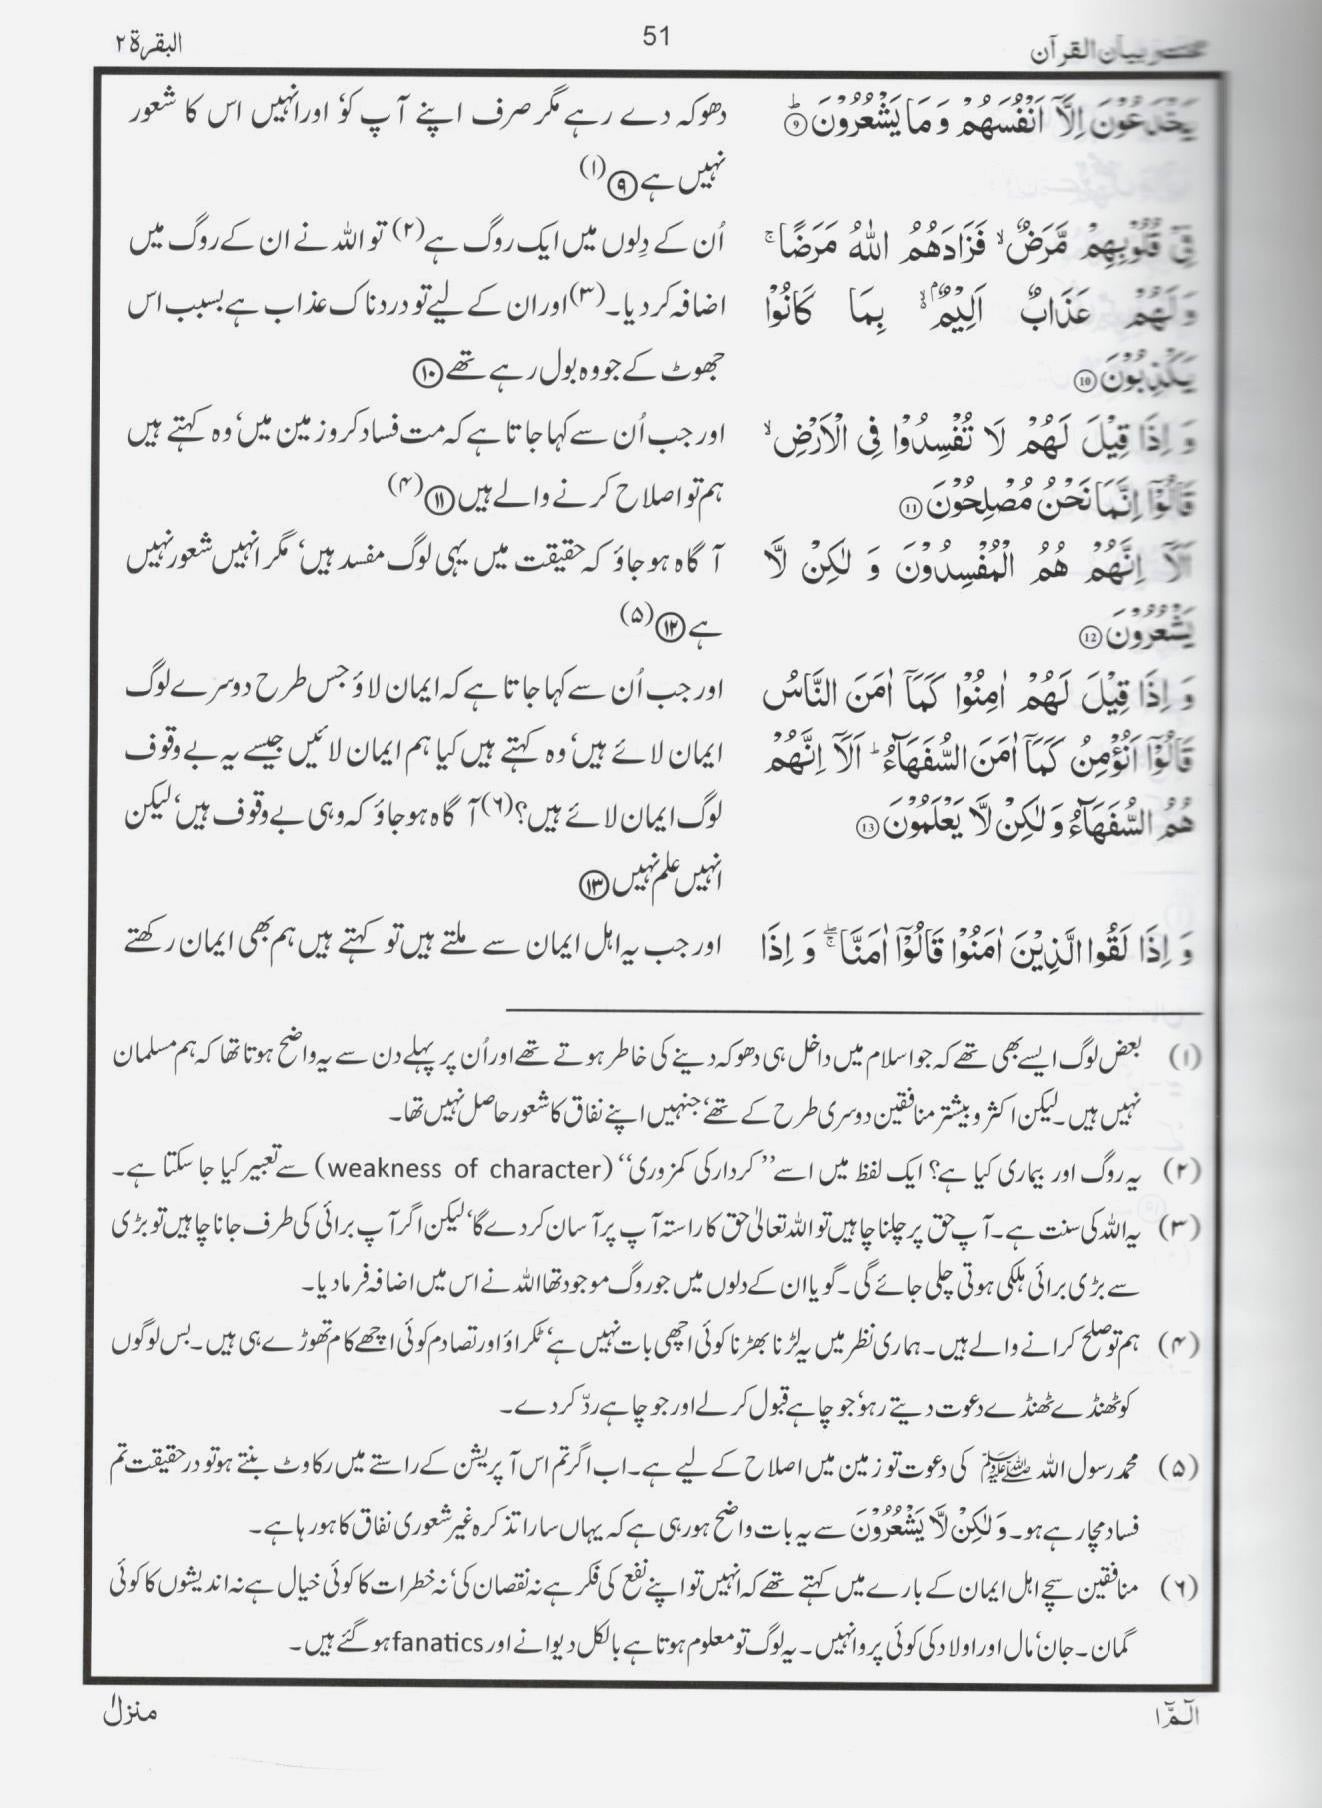 مختصر بیان القرآن
51
البقرۃ ۲
يَخْدَعُوْنَ اِلَّاۤ اَنْفُسَهُمْ وَ مَا يَشْعُرُوْنَؕ ۹
فِىْ قُلُوْبِهِمْ مَّرَضٌۙ فَزَادَهُمُ اللّٰهُ مَرَضًاۚ
وَ لَهُمْ عَذَابٌ اَلِيْمٌۢۙ بِمَا كَانُوْا
يَكْذِبُوْنَ 10
وَ اِذَا قِيْلَ لَهُمْ لَا تُفْسِدُوْا فِى الْاَرْضِۙ
قَالُوْۤا اِنَّمَا نَحْنُ مُصْلِحُوْنَ 11
اَلَاۤ اِنَّهُمْ هُمُ الْمُفْسِدُوْنَ وَ لٰكِنْ لَّا
يَشْعُرُوْنَ 12
وَ اِذَا قِيْلَ لَهُمْ اٰمِنُوْا كَمَاۤ اٰمَنَ النَّاسُ
قَالُوْۤا اَنُؤْمِنُ كَمَاۤ اٰمَنَ السُّفَهَآءُؕ اَلَاۤ اِنَّهُمْ
هُمُ السُّفَهَآءُ وَ لٰكِنْ لَّا يَعْلَمُوْنَ 13
وَ اِذَا لَقُوا الَّذِيْنَ اٰمَنُوْا قَالُوْۤا اٰمَنَّاۖۚ وَ اِذَا
دھوکہ دے رہے مگر صرف اپنے آپ کو‘ اور انہیں اس کا شعور
نہیں ہے ۹ (۱)
اُن کے دِلوں میں ایک روگ ہے (۲) تو اللہ نے ان کے روگ میں
اضافہ کر دیا۔ (۳) اور ان کے لیے تو دردناک عذاب ہے بسبب اس
جھوٹ کے جو وہ بول رہے تھے ۱۰
اور جب اُن سے کہا جاتا ہے کہ مت فساد کرو زمین میں‘ وہ کہتے ہیں
ہم تو اصلاح کرنے والے ہیں ۱۱ (۴)
آگاہ ہو جاؤ کہ حقیقت میں یہی لوگ مفسد ہیں‘ مگر انہیں شعور نہیں
ہے ۱۲ (۵)
اور جب اُن سے کہا جاتا ہے کہ ایمان لاؤ جس طرح دوسرے لوگ
ایمان لائے ہیں‘ وہ کہتے ہیں کیا ہم ایمان لائیں جیسے یہ بے وقوف
لوگ ایمان لائے ہیں؟ (۶) آگاہ ہو جاؤ کہ وہی بے وقوف ہیں‘ لیکن
انہیں علم نہیں ۱۳
اور جب یہ اہل ایمان سے ملتے ہیں تو کہتے ہیں ہم بھی ایمان رکھتے
(۱) بعض لوگ ایسے بھی تھے کہ جو اسلام میں داخل ہی دھوکہ دینے کی خاطر ہوتے تھے اور اُن پر پہلے دن سے یہ واضح ہوتا تھا کہ ہم مسلمان
نہیں ہیں۔ لیکن اکثر و بیشتر منافقین دوسری طرح کے تھے‘ جنہیں اپنے نفاق کا شعور حاصل نہیں تھا۔
(۲) یہ روگ اور بیماری کیا ہے؟ ایک لفظ میں اسے ’’کردار کی کمزوری‘‘ (weakness of character) سے تعبیر کیا جا سکتا ہے۔
(۳) یہ اللہ کی سنت ہے۔ آپ حق پر چلنا چاہیں تو اللہ تعالیٰ حق کا راستہ آپ پر آسان کر دے گا‘ لیکن اگر آپ برائی کی طرف جانا چاہیں تو بڑی
سے بڑی برائی ہلکی ہوتی چلی جائے گی۔ گویا ان کے دلوں میں جو روگ موجود تھا اللہ نے اس میں اضافہ فرما دیا۔
(۴) ہم تو صلح کرانے والے ہیں۔ ہماری نظر میں یہ لڑنا بھڑنا کوئی اچھی بات نہیں ہے‘ ٹکراؤ اور تصادم کوئی اچھے کام تھوڑے ہی ہیں۔ بس لوگوں
کو ٹھنڈے ٹھنڈے دعوت دیتے رہو‘ جو چاہے قبول کر لے اور جو چاہے ردّ کر دے۔
(۵) محمد رسول اللہ ﷺ کی دعوت تو زمین میں اصلاح کے لیے ہے۔ اب اگر تم اس آپریشن کے راستے میں رکاوٹ بنتے ہو تو درحقیقت تم
فساد مچا رہے ہو۔ وَلٰكِنْ لَّا يَشْعُرُوْنَ سے یہ بات واضح ہو رہی ہے کہ یہاں سارا تذکرہ غیر شعوری نفاق کا ہو رہا ہے۔
(۶) منافقین سچے اہل ایمان کے بارے میں کہتے تھے کہ انہیں تو اپنے نفع کی فکر ہے نہ نقصان کی‘ نہ خطرات کا کوئی خیال ہے نہ اندیشوں کا کوئی
گمان۔ جان‘ مال اور اولاد کی کوئی پروا نہیں۔ یہ لوگ تو معلوم ہوتا ہے بالکل دیوانے اور fanatics ہو گئے ہیں۔
الٓمّٓ ۱
منزل ۱